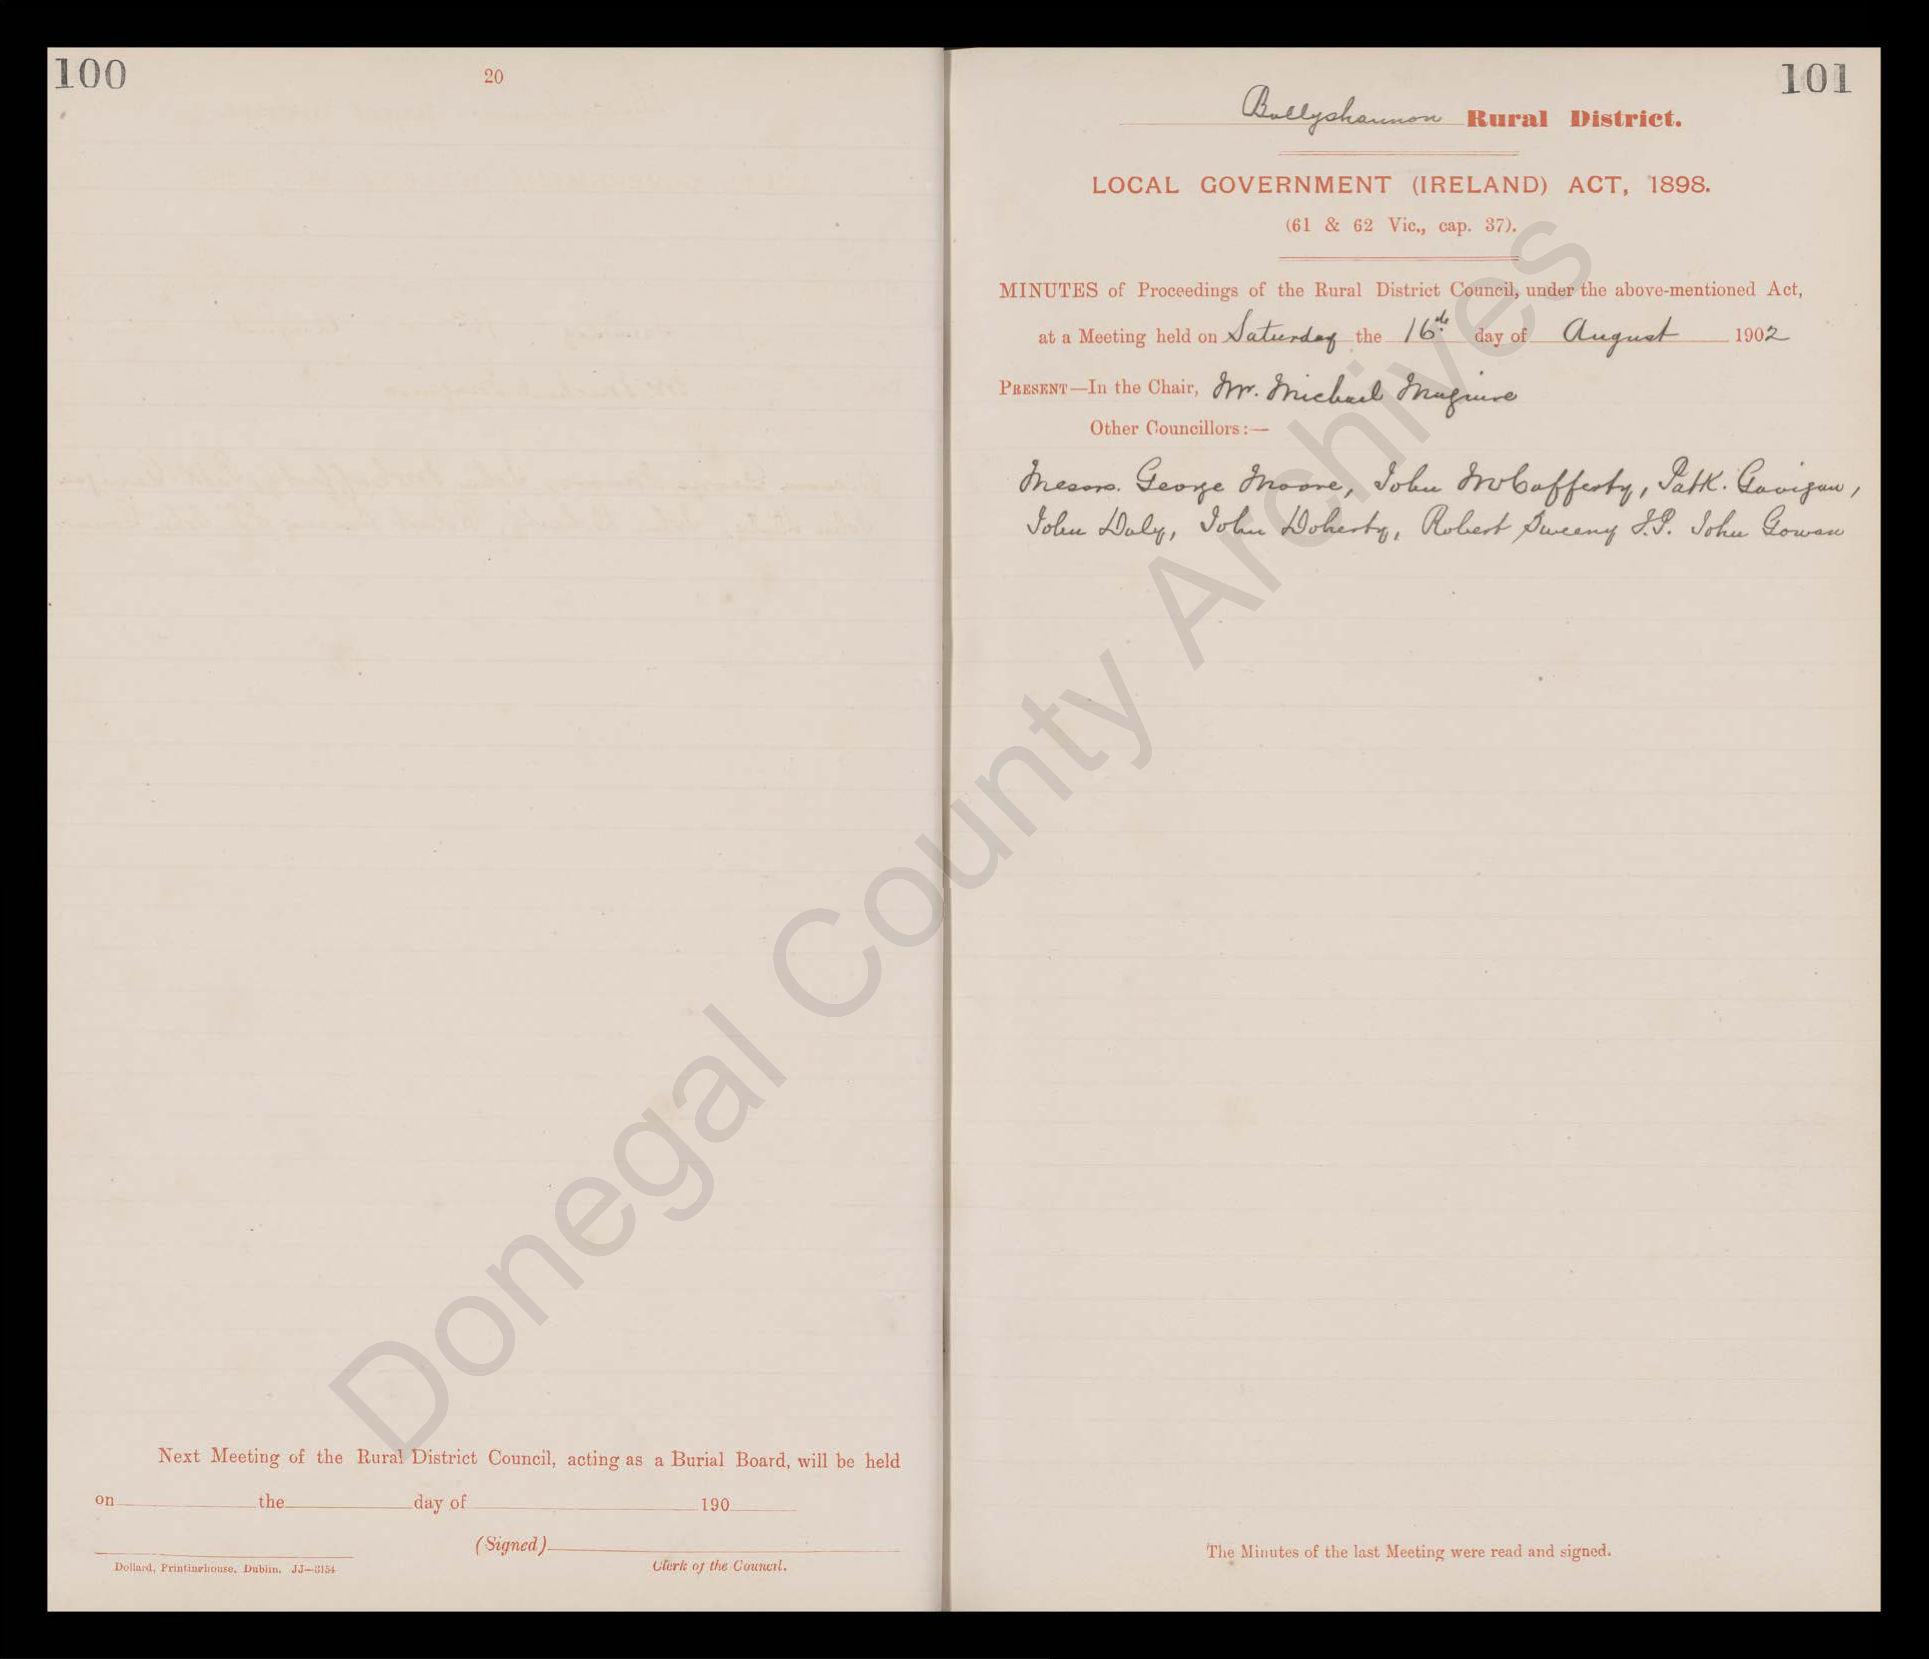 100
20
Next Meeting of the Rural District Council, acting as a Burial Board, will be held
on the day of 190
(Signed)
Clerk of the Council.
Dollard, Printinghouse, Dublin. JJ—3154
101
Ballyshannon Rural District.
LOCAL GOVERNMENT (IRELAND) ACT, 1898.
(61 & 62 Vic., cap. 37).
MINUTES of Proceedings of the Rural District Council, under the above-mentioned Act,
at a Meeting held on Saturday the 16th day of August 1902
PRESENT—In the Chair, Mr. Michael Maguire
Other Councillors:—
Messrs. George Moore, John McCafferty, Patk. Gavigan,
John Daly, John Doherty, Robert Sweeny J.P. John Gowan
The Minutes of the last Meeting were read and signed.
Donegal County Archives